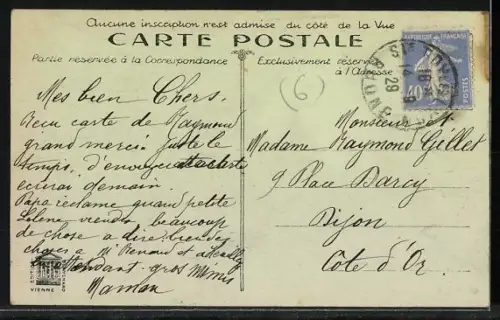 Aucune inscription n'est admise du côté de la Vue
CARTE POSTALE
Partie réservée à la Correspondance
Exclusivement réservé
à l'Adresse
RÉPUBLIQUE FRANÇAISE
40
POSTES
29
(6)
Mes bien Chers.
Reçu carte de Raymond
grand merci. Juste le
temps d'envoyer
écrirai demain.
Papa réclame quand petite
viendra beaucoup
de chose a dire bien des
choses a Mr Renaud et
attendant gros
Maman
Monsieur et
Madame Raymond Gillet
9 Place Darcy
Dijon
Côte d'Or
VIENNE